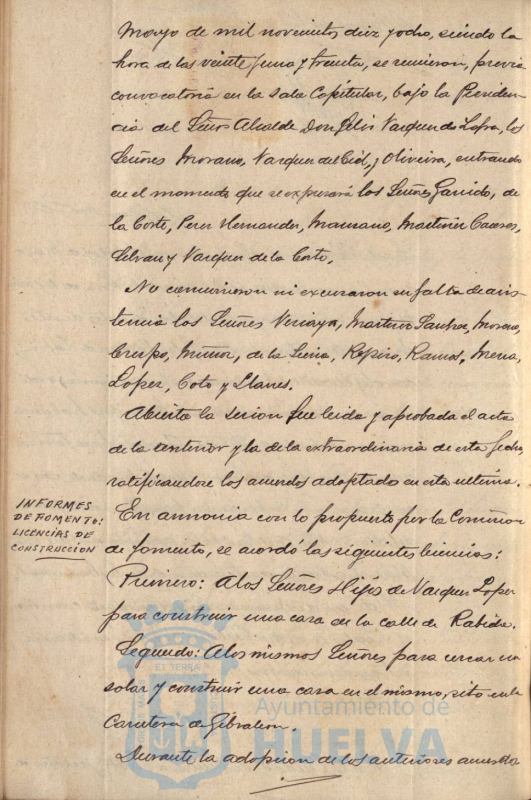 Mayo de mil novecientos diez y ocho, siendo la
hora de las veinte y una y treinta, se reunieron, previa
convocatoria en la sala Capitular, bajo la Presiden-
cia del Señor Alcalde Don Félix Vazquez de Zafra, los
Señores Morano, Vazquez del Cid, y Oliveira, entrando
en el momento que se expresará los Señores Garrido, de
la Corte, Perez Hernandez, Mascaros, Martinez Caceres,
Selvan y Vazquez de la Corte.
No concurrieron ni excusaron su falta de asis-
tencia los Señores Vizcaya, Martinez Sanchez, Moreno,
Crespo, Muñoz, de la Sierra, Repiso, Ramos, Mena,
Lopez, Coto y Llanes.
Abierta la sesion fue leida y aprobada el acta
de la anterior y la de la extraordinaria de esta fecha,
ratificandose los acuerdos adoptados en esta ultima.
INFORMES
DE FOMENTO:
LICENCIAS DE
CONSTRUCCION
En armonia con lo propuesto por la Comision
de fomento, se acordó las siguientes licencias:
Primero: A los Señores Hijos de Vazquez Lopez
para construir una casa de la calle de Rabida.
Segundo: A los mismos Señores para cercar un
solar y construir una casa en el mismo, sito en la
Carretera de Gibraleon.
Durante la adopcion de los anteriores acuerdos
ET TERRA
Ayuntamiento de
HUELVA